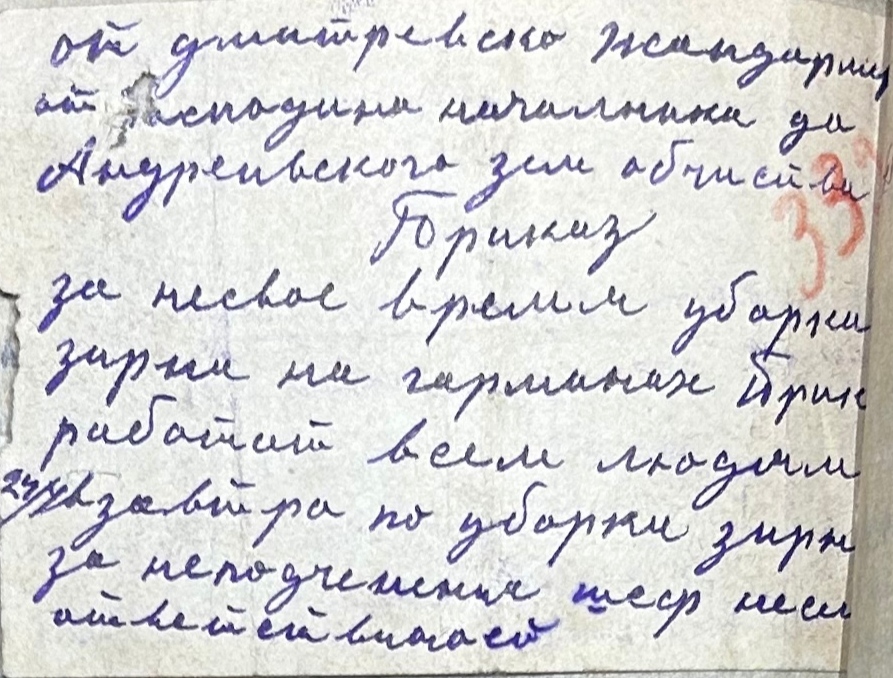 от дмитревско жандарми
от господина началника до
Андреивского зем обчиства
Приказ
за несвое времям уборки
зирна на гарманах Прик
работат всем людям
24/X взавтра по уборки зирн
за неподченения шеф несе
ответствиност
33